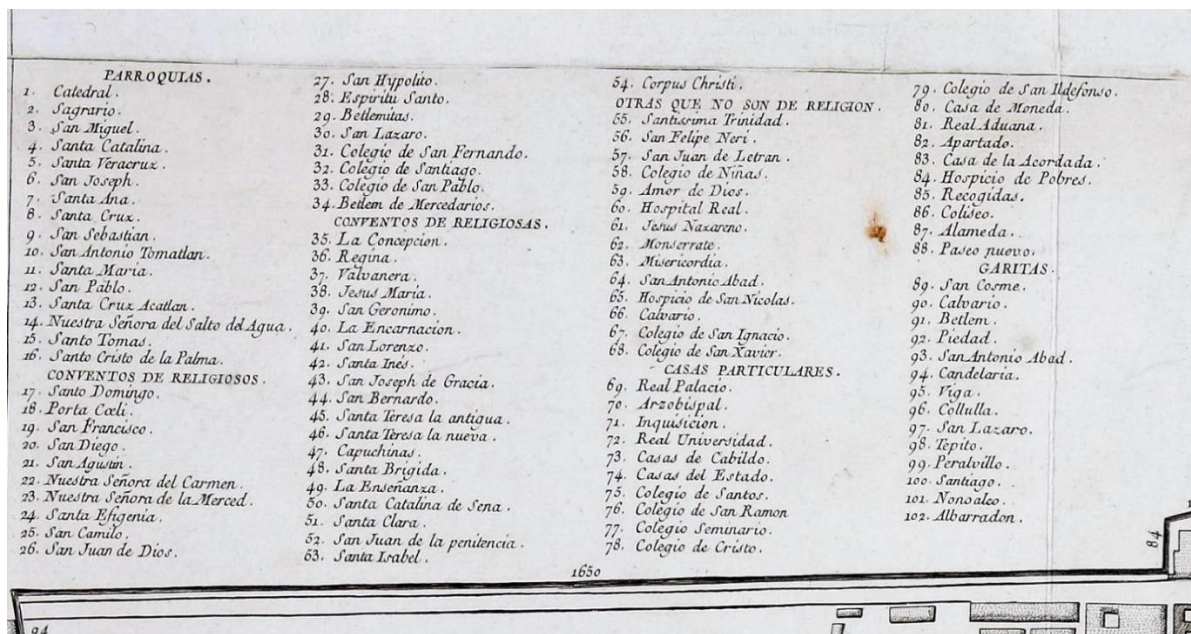 PARROQUIAS.
1. Catedral.
2. Sagrario.
3. San Miguel.
4. Santa Catalina.
5. Santa Veracruz.
6. San Joseph.
7. Santa Ana.
8. Santa Crux.
9. San Sebastian.
10. San Antonio Tomatlan.
11. Santa Maria.
12. San Pablo.
13. Santa Crux Acatlan.
14. Nuestra Señora del Salto del Agua.
15. Santo Tomas.
16. Santo Cristo de la Palma.
CONVENTOS DE RELIGIOSOS.
17. Santo Domingo.
18. Porta Cœli.
19. San Francisco.
20. San Diego.
21. San Agustin.
22. Nuestra Señora del Carmen.
23. Nuestra Señora de la Merced.
24. Santa Efigenia.
25. San Camilo.
26. San Juan de Dios.
27. San Hypolito.
28. Espiritu Santo.
29. Betlemitas.
30. San Lazaro.
31. Colegio de San Fernando.
32. Colegio de Santiago.
33. Colegio de San Pablo.
34. Betlem de Mercedarios.
CONVENTOS DE RELIGIOSAS.
35. La Concepcion.
36. Regina.
37. Valvanera.
38. Jesus Maria.
39. San Geronimo.
40. La Encarnacion.
41. San Lorenzo.
42. Santa Inés.
43. San Joseph de Gracia.
44. San Bernardo.
45. Santa Teresa la antigua.
46. Santa Teresa la nueva.
47. Capuchinas.
48. Santa Brigida.
49. La Enseñanza.
50. Santa Catalina de Sena.
51. Santa Clara.
52. San Juan de la penitencia.
53. Santa Isabel.
54. Corpus Christi.
OTRAS QUE NO SON DE RELIGION.
55. Santissima Trinidad.
56. San Felipe Neri.
57. San Juan de Letran.
58. Colegio de Niñas.
59. Amor de Dios.
60. Hospital Real.
61. Jesus Naxareno.
62. Monserrate.
63. Misericordia.
64. San Antonio Abad.
65. Hospicio de San Nicolas.
66. Calvario.
67. Colegio de San Ignacio.
68. Colegio de San Xavier.
CASAS PARTICULARES.
69. Real Palacio.
70. Arzobispal.
71. Inquisicion.
72. Real Universidad.
73. Casas de Cabildo.
74. Casas del Estado.
75. Colegio de Santos.
76. Colegio de San Ramon
77. Colegio Seminario.
78. Colegio de Cristo.
79. Colegio de San Ildefonso.
80. Casa de Moneda.
81. Real Aduana.
82. Apartado.
83. Casa de la Acordada.
84. Hospicio de Pobres.
85. Recogidas.
86. Coliseo.
87. Alameda.
88. Paseo nuevo.
GARITAS.
89. San Cosme.
90. Calvario.
91. Betlem.
92. Piedad.
93. San Antonio Abad.
94. Candelaria.
95. Viga.
96. Collulla.
97. San Lazaro.
98. Tepito.
99. Peralvillo.
100. Santiago.
101. Nonoalco.
102. Albarradon.
1650
84
94